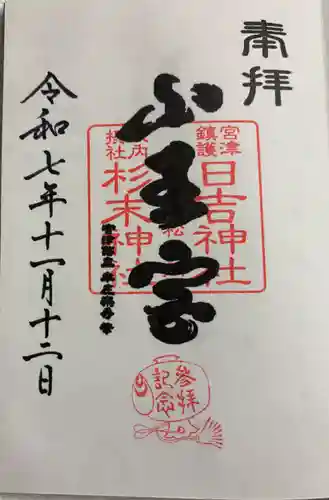 奉拝
宮津
鎮護
日吉神社
山王宮
摂社
杉末神社
令和七年十一月十二日
参拝
記念